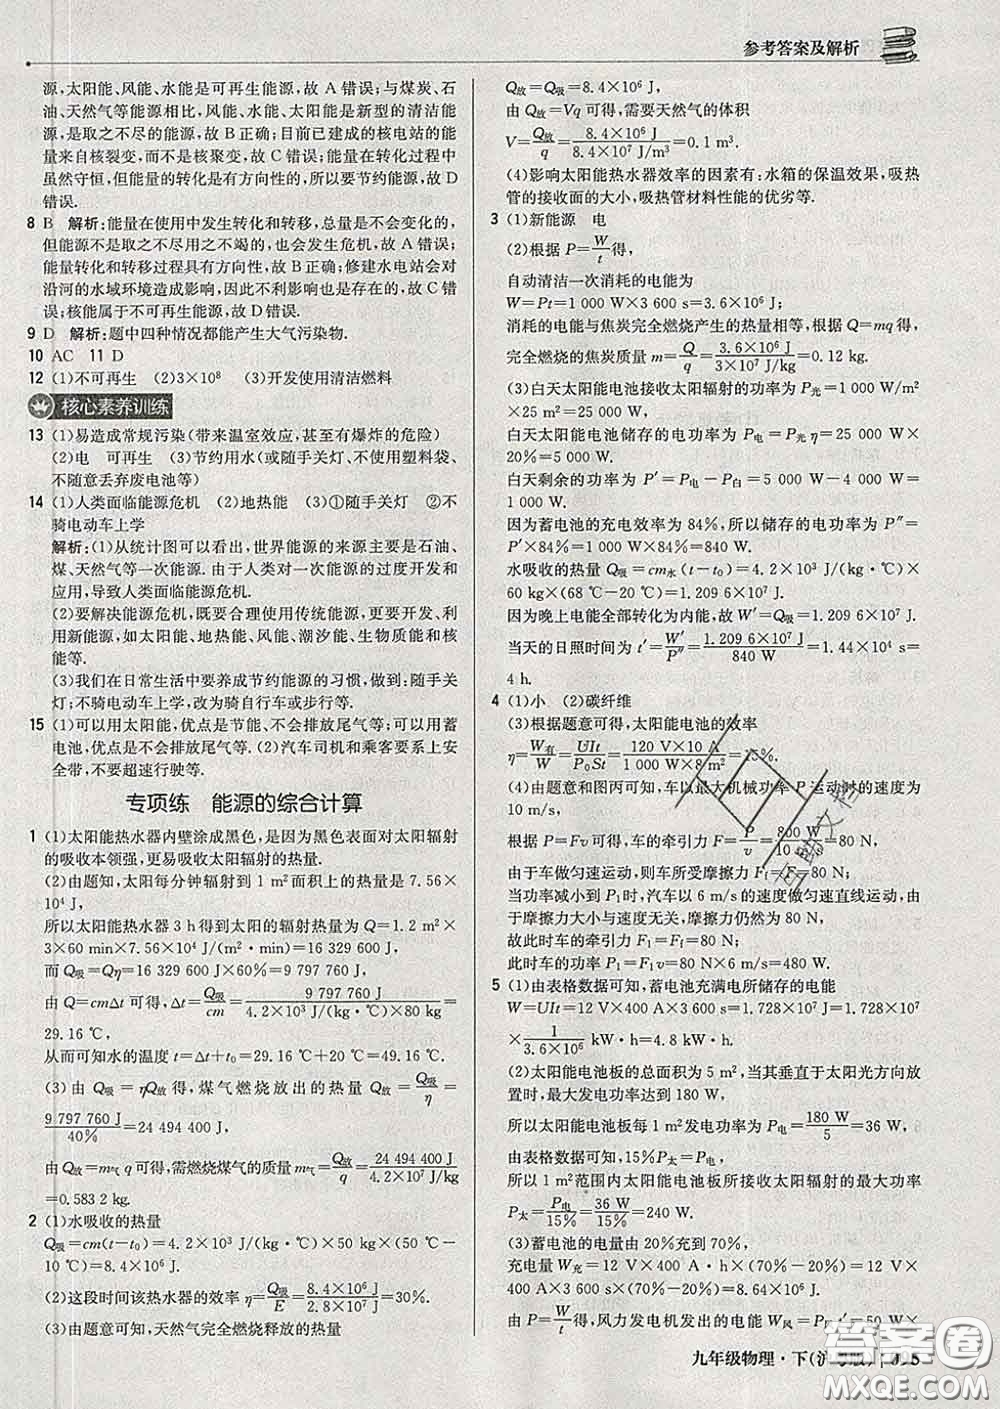 参考答案及解析
源,太阳能、风能、水能是可再生能源,故 A 错误;与煤炭、石
油、天然气等能源相比,风能、水能、太阳能是新型的清洁能
源,是取之不尽的能源,故 B 正确;目前已建成的核电站的能
量来自核裂变,而不是核聚变,故 C 错误;能量在转化过程中
虽然守恒,但能量的转化是有方向性的,所以要节约能源,故 D
错误.
8 B 解析:能量在使用中发生转化和转移,总量是不会变化的,
但能源不是取之不尽用之不竭的,也会发生危机,故 A 错误;
能量转化和转移过程具有方向性,故 B 正确;修建水电站会对
沿河的水域环境造成影响,因此不利影响也是存在的,故 C 错
误;核能属于不可再生的能源,故 D 错误.
9 D 解析:题中四种情况都能产生大气污染物.
10 AC 11 D
12 (1)不可再生 (2)3×10⁸ (3)开发使用清洁燃料
核心素养训练
13 (1)易造成常规污染(带来温室效应,甚至有爆炸的危险)
(2)电 可再生 (3)节约用水(或随手关灯、不使用塑料袋、
不随意丢弃废电池等)
14 (1)人类面临能源危机 (2)地热能 (3)①随手关灯 ②不
骑电动车上学
解析:(1)从统计图可以看出,世界能源的来源主要是石油、
煤、天然气等一次能源. 由于人类对一次能源的过度开发和
应用,导致人类面临能源危机.
(2)要解决能源危机,既要合理使用传统能源,更要开发、利
用新能源,如太阳能、地热能、风能、潮汐能、生物质能和核
能等.
(3)我们在日常生活中要养成节约能源的习惯,做到:随手关
灯;不骑电动车上学,改为骑自行车或步行等.
15 (1)可以用太阳能,优点是节能、不会排放尾气等;可以用蓄
电池,优点是不会排放尾气等. (2)汽车司机和乘客要系上安
全带,不要超速行驶等.
专项练 能源的综合计算
1 (1)太阳能热水器内壁涂成黑色,是因为黑色表面对太阳辐射
的吸收本领强,更易吸收太阳辐射的热量.
(2)由题知,太阳每分钟辐射到 1 m² 面积上的热量是 7.56×
10⁴ J,
所以太阳能热水器 3 h 得到太阳的辐射热量 Q=1.2 m²
×3×60 min×7.56×10⁴ J/(m²·min)=16 329 600 J,
而 Q吸=Qη=16 329 600 J×60%=9 797 760 J,
由 Q=cmΔt 可得,Δt=Q吸/cm=9 797 760 J/(4.2×10³ J/(kg·℃)×80 kg)=
29.16 ℃,
从而可知水的温度 t=Δt+t₀=29.16 ℃+20 ℃=49.16 ℃.
(3)由 Q吸=ηQ放 得,煤气燃烧放出的热量 Q放=Q吸/η=
9 797 760 J/40%=24 494 400 J,
由 Q放=m气q 可得,需燃烧煤气的质量 m气=Q放/q=24 494 400 J/(4.2×10⁷ J/kg)
=0.583 2 kg.
2 (1)水吸收的热量
Q吸=cm(t-t₀)=4.2×10³ J/(kg·℃)×50 kg×(50 ℃-
10 ℃)=8.4×10⁶ J.
(2)这段时间该热水器的效率 η=Q吸/E=8.4×10⁶ J/2.8×10⁷ J=30%.
(3)由题意可知,天然气完全燃烧释放的热量
Q放=Q吸=8.4×10⁶ J,
由 Q放=Vq 可得,需要天然气的体积
V=Q放/q=8.4×10⁶ J/(8.4×10⁷ J/m³)=0.1 m³.
(4)影响太阳能热水器效率的因素有:水箱的保温效果,吸热
管的接收面的大小,吸热管材料性能的优劣等.
3 (1)新能源 电
(2)根据 P=W/t 得,
自动清洁一次消耗的电能为
W=Pt=1 000 W×3 600 s=3.6×10⁶ J,
消耗的电能与焦炭完全燃烧产生的热量相等,根据 Q=mq得,
完全燃烧的焦炭质量 m=Q/q=3.6×10⁶ J/(3×10⁷ J/kg)=0.12 kg.
(3)白天太阳能电池接收太阳辐射的功率为 P光=1 000 W/m²
×25 m²=25 000 W,
白天太阳能电池储存的电功率为 P电=P光η=25 000 W×
20%=5 000 W,
白天剩余的功率为 P′=P电-P白=5 000 W-4 000 W=
1 000 W,
因为蓄电池的充电效率为 84%,所以储存的功率为 P″=
P′×84%=1 000 W×84%=840 W.
水吸收的热量 Q吸=cm水(t-t₀)=4.2×10³ J/(kg·℃)×
60 kg×(68 ℃-20 ℃)=1.209 6×10⁷ J,
因为晚上电能全部转化为内能,故 W′=Q吸=1.209 6×10⁷ J,
当天的日照时间为 t′=W′/P″=1.209 6×10⁷ J/840 W=1.44×10⁴ s=
4 h.
4 (1)小 (2)碳纤维
(3)根据题意可得,太阳能电池的效率
η=W有/W=UIt/P₀St=120 V×10 A/(1 000 W×8 m²)=15%.
(4)由图丙可知,车以最大机械功率 P 运动时的速度为
10 m/s,
根据 P=Fv 可得,车的牵引力 F=P/v=800 W/10 m/s=80 N,
由于车做匀速运动,则车所受摩擦力 Ff=F=80 N;
当功率减小到 P₁时,汽车以 6 m/s 的速度做匀速直线运动,
由于摩擦力大小与速度无关,摩擦力仍然为 80 N,
故此时车的牵引力 F₁=Ff=80 N;
此时车的功率 P₁=F₁v=80 N×6 m/s=480 W.
5 (1)由表格数据可知,蓄电池充满电所储存的电能
W=UIt=12 V×400 A×3 600 s=1.728×10⁷ J=1.728×10⁷
×1/(3.6×10⁶) kW·h=4.8 kW·h.
(2)太阳能电池板的总面积为 5 m²,当其正对于太阳光方向放
置时,最大发电功率达到 180 W,
所以太阳能电池板每 1 m²发电功率为 P电=180 W/5=36 W,
由表格数据可知,15%P太=P电,
所以 1 m²范围内太阳能电池板所接收太阳辐射的最大功率
P太=P电/15%=36 W/15%=240 W.
(3)蓄电池的电量由 20%充到 70%,
充电量 W充=12 V×400 A·h×(70%-20%)=12 V×
400 A×3 600 s×(70%-20%)=8.64×10⁶ J,
由 P=W/t 得,风力发电机发出的电能 W风=P风t′=50 W×
九年级物理·下(沪粤版)
答案圈
MXQE.COM